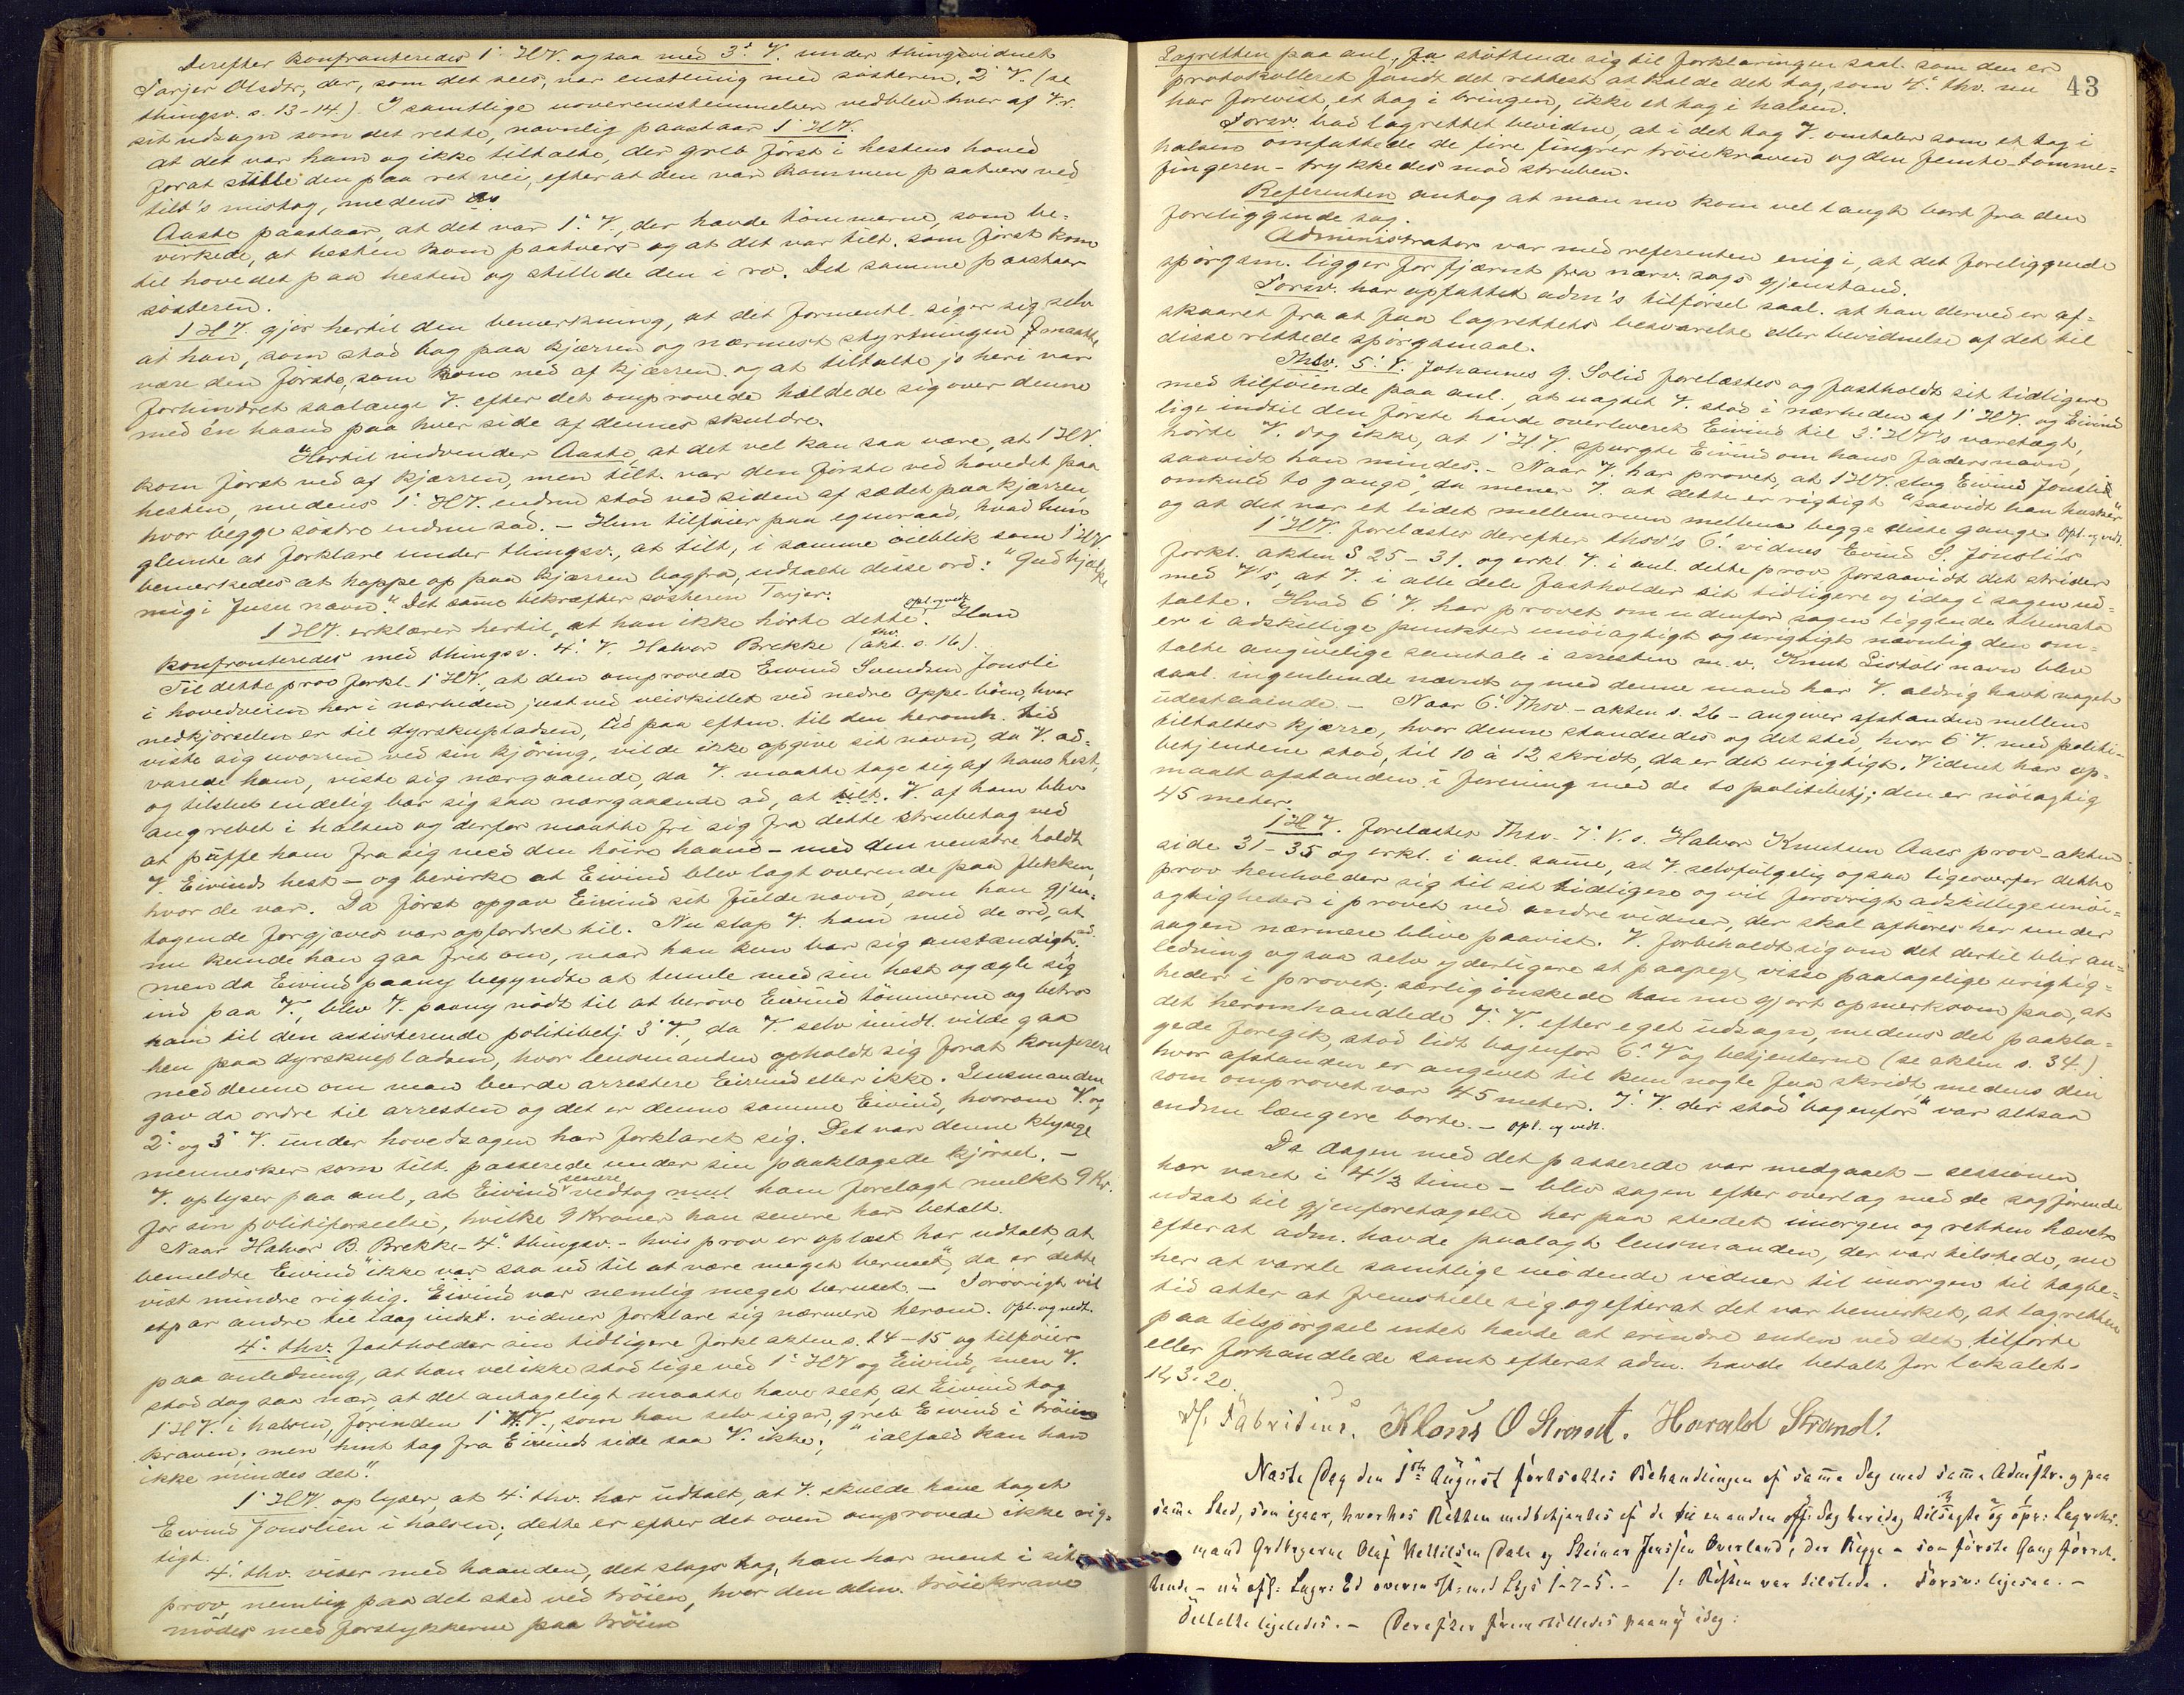 Derefter konfronteredes 1' HV. ogsaa med 3' V. under thingsvidnet
Tarjer Olsdtr, der, som det sees, var enstemig med søsteren, 2' V. (se
thingsv. s. 13-14). I samtlige uoverensstemmelser vedblev hver af V.r.
sit udsagn som det rette, navnlig paastaar 1' HV.
at det var ham og ikke tiltalte, der greb først i hestens hoved
forat stille den paa ret vei, efterat den var kommen paatvers ved
tilt's mistag, medens
Aaste paastaar, at det var 1' V., der havde tømmerne, som be=
virkede, at hesten kom paatvers og at det var tilt. som først kom
til hovedet paa hesten og stillede den i ro. Det samme paastaar
søsteren.
1 HV. gjør hertil den bemerkning, at det formentl. siger sig selv
at han, som stod bag paa kjærren og nærmest styrtningen maatte
være den første, som kom ned af kjærren og at tiltalte jo heri var
forhindret saalænge V. efter det omprovede holdede sig over denne
med én haand paa hver side af dennes skuldre.
Hertil indvender Aaste, at det vel kan saa være, at 1 HV.
kom først ned af kjærren, men tilt. var den første ved hovedet paa
hesten, medens 1' HV. endnu stod ved siden af sædet paa kjærren,
hvor begge søstre endnu sad. - Hun tilføier paa egenraad, hvad hun
glemte at forklare under thingsv., at tilt, i samme øieblik som 1' HV
bemerkedes at hoppe op paa kjærren bagfra, udtalte disse ord: "Gud hjælpe
mig i Jesu navn." Det samme bekræfter søsteren Tarjer.
1 HV. erklærer hertil, at han ikke hørte dette. opl. og vedt. Han
konfronteredes med thingsv. 4' V. Halvor Brekke (thv. akt. s. 16).
Til dette prov forkl. 1' HV., at den omprovede Eivind Svendsen Jonsli
i hovedveien her i nærheden just ved veiskillet ved nedre Oppe-bøen, hvor
nedkjørselen er til dyrskupladsen, lid paa eftm. til den heromh. tid
viste sig uvorren ved sin kjøring, vilde ikke opgive sit navn, da V. ad=
varede ham, viste sig nærgaaende, da V. maatte tage sig af hans hest,
og tilslut endelig bar sig saa nærgaaende ad, at tilt. V. af ham blev
angrebet i halsen og derfor maatte fri sig fra dette strubetag ved
at puffe ham fra sig med den høire haand - med den venstre holdt
V. Eivinds hest - og bevirke at Eivind blev lagt overende paa flekken,
hvor de var. Da først opgav Eivind sit fulde navn, som han gjen=
tagende forgjæves var opfordret til. Nu slap V. ham med de ord, at
nu kunde han gaa fret om, naar han kun bar sig anstændigt ad.
men da Eivind paany begyndte at tumle med sin hest og egle sig
ind paa V., blev V. paany nødt til at berøve Eivind tømmerne og betro
ham til den assisterende politibetj. 3' V., da V. selv imidl. vilde gaa
hen paa dyrskuepladsen, hvor lensmanden opholdt sig forat konferere
med denne om man burde arrestere Eivind eller ikke. Lensmanden
gav da ordre til arresten og det er denne samme Eivind, hvorom V. og
2' og 3' V. under hovedsagen har forklaret sig. Det var denne klynge
mennesker som tilt. passerede under sin paaklagede kjørsel. -
V. oplyser paa anl, at Eivind senere vedtog mul ham forelagt mulkt 9 Kr.
for sin politiforseelse, hvilke 9 Kroner han senere har betalt.
Naar Halvor B. Brekke - 4' thingsv. - hvis prov er oplæst har udtalt, at
bemeldte Eivind "ikke var saa ud til at være meget beruset", da er dette
vist mindre rigtig. Eivind var nemlig meget beruset. - Forøvrigt vil
etpar andre til idag indst. vidner forklare sig nærmere herom. Opl. og vedt.
4' thv. fastholder sin tidligere forkl akten s. 14-15 og tilføier
paa anledning, at han vel ikke stod lige ved 1' HV og Eivind, men V.
stod dog saa nær, at det antageligt maatte have seet, at Eivind tog
1' HV. i halsen, førinden 1' HV., som han selv siger, greb Eivind i trøie
kraven; men hint tag fra Eivinds side saa V. ikke; "ialfald kan han
ikke mindes det."
1' HV. oplyser, at 4' thv. har udtalt, at V. skulde have taget
Eivind Jonslien i halsen; dette er efter det oven omprovede ikke rig=
tigt.
4' thv. viser med haanden, det slags tag, han har ment i sit
prov, nemlig paa det sted ved trøien, hvor den alm. trøiekrave
mødes med forstykkerne paa trøien
43
Lagretten paa anl, støttende sig til forklaringen saal. som den er
protokolleret fandt det rettest at kalde det tag, som 4' thv. nu
har forevist, et tag i bringen, ikke et tag i halsen.
Forsv. bad lagrettet bevidne, at i det tag V. omtaler som et tag i
halsen omfattede de fire fingrer trøiekraven og den femte-tomme=
fingeren - trykkedes mod struben.
Referenten antog at man nu kom vel langt bort fra den
foreliggende sag.
Administrator var med referenten enig i, at det foreliggende
spørgsm. ligger for fjærnt fra nærv. sags gjenstand.
Forsv. har opfattet adm's tilførsel saal. at han derved er af=
skaaret fra at faa lagrettets besvarelse eller bevidnelse af det til
disse rettede spørgsmaal.
Thsv. 5' V. Johannes G. Solid forelæstes og fastholdt sit tidligere
med tilføiende paa anl., at uagtet V. stod i nærheden af 1' HV. og Eivind
lige indtil den første havde overleveret Eivind til 3' HV's varetægt,
hørte V. dog ikke, at 1' HV. spurgte Eivind om hans fadersnavn,
saavidt han mindes. - Naar V. har provet, at 1 HV. slog Eivind Jonsli
omkuld to gange", da mener V. at dette er rigtigt "saavidt han husker"
og at det var et lidet mellemrum mellem begge disse gange. Opl. og vedt.
1' HV. forelæstes derefter thsv's 6' vidnes Eivind S. Jonsli's
forkl. akten S 25-31. og erkl. V. i anl. dette prov forsaavidt det strider
med V's, at V. i alle dele fastholder sit tidligere og idag i sagen ud=
talte. Hvad 6' V. har provet om udenfor sagen liggende themata
er i adskillige punkter unøiagtigt og urigtigt navnlig den om=
talte angivelige samtale i arresten m.v. Knut Listøls navn blev
saal. ingenlunde nævnt og med denne mand har V. aldrig havt noget
udestaaende. - Naar 6' Thsv - akten s. 26 - angiver afstanden mellem
tiltaltes kjærre, hvor denne standsedes og det sted, hvor 6' V. med politi-
betjentene stod, til 10 à 12 skridt, da er det urigtigt. Vidnet har op=
maalt afstanden i forening med de to politibetj; den er nøiagtig
45 meter.
1 HV. forelæstes Thsv. 7' V. s. Halvor Knutsen Aaes prov - akten
side 31-35 og erkl. i anl. samme, at V. selvfølgelig ogsaa ligeoverfor dette
prov henholder sig til sit tidligere og vil forøvrigt adskillige unøi=
agtigheder i provet ved andre vidner, der skal afhøres her under
sagen nærmere blive paavist. V. forbeholdt sig om det dertil blir an=
ledning ogsaa selv yderligere at paapege visse paatagelige urigtig=
heder i provet; særlig ønskede han nu gjort opmerksom paa, at
det heromhandlede 7' V. efter eget udsagn, medens det paakla=
gede foregik, stod lidt bagenfor 6' V og betjenterne (se akten s. 34.)
hvor afstanden er angivet til kun nogle faa skridt, medens den
som omprovet var 45 meter. 7' V. der stod "bagenfor" var altsaa
endnu længere borte. - Opl. og vedt.
Da dagen med det passerede var medgaaet - sessionen
har varet i 4 1/3 time - blev sagen efter overlæg med de sagførende
udsat til gjenforetagelse her paa stedet imorgen og retten hævet
efterat adm. havde paalagt lensmanden, der var tilstede, nu
her at varsle samtlige mødende vidner til imorgen til tagbe=
tid atter at fremstille sig og efterat det var bemerket, at lagretten
paa tilspørgsel intet havde at erindre enten ved det tilførte
eller forhandlede samt efterat adm. havde betalt for lokalet-
Kr 3.20.
Fabritius. Klaus O Strand. Harald Strand.
Næste Dag den 1ste August fortsattes Behandlingen af samme Sag med samme Admstr. og paa
samme Sted, som igaar, hvorhos Retten medbetjentes af de til en anden off: Sag her idag tilsagte og opr: Lagretts-
mænd Grdbrgerne Olaf Kettilsen Dale og Steinar Jenssen Overland, der Begge - som første Gang forret-
tende - nu afl: Lagr: Ed overensst: med Lbgs 1-7-5. - Reften var tilstede. Forsv: ligesaa. -
Tiltalte ligeledes. - Derefter fremstilledes paany idag: